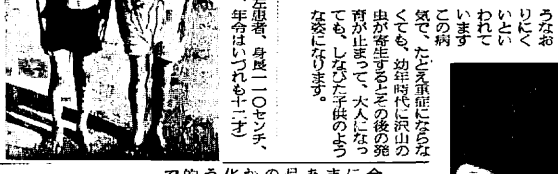 うなお
りにく
いとい
われて
います
この病
気で、たとえ重症にならな
くても、幼年時代に沢山の
虫が寄生するとその後の発
育が止まって、大人になっ
ても、しなびた子供のよう
な姿になります。
左患者、身長一一〇センチ、
年令はいづれも十二才)